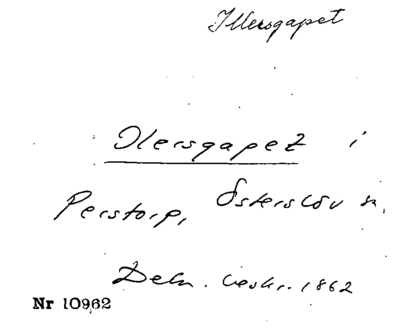 Illersgapet
Ilersgapet i
Perstorp, Österslöv sn.
Deln. beskr. 1862
Nr 10962